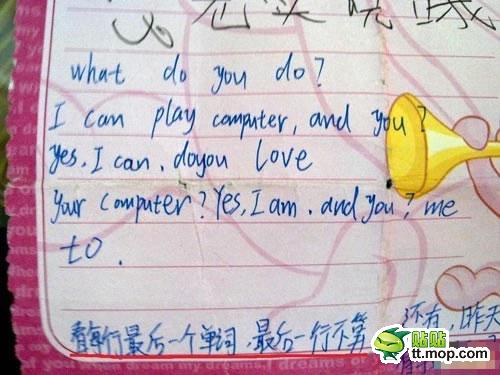 what do you do?
I can play computer, and you?
yes, I can. doyou love
your computer? Yes, I am. and you? me
to.
看每行最后一个单词,最后一行不算
还有,昨天
贴贴
tt.mop.com